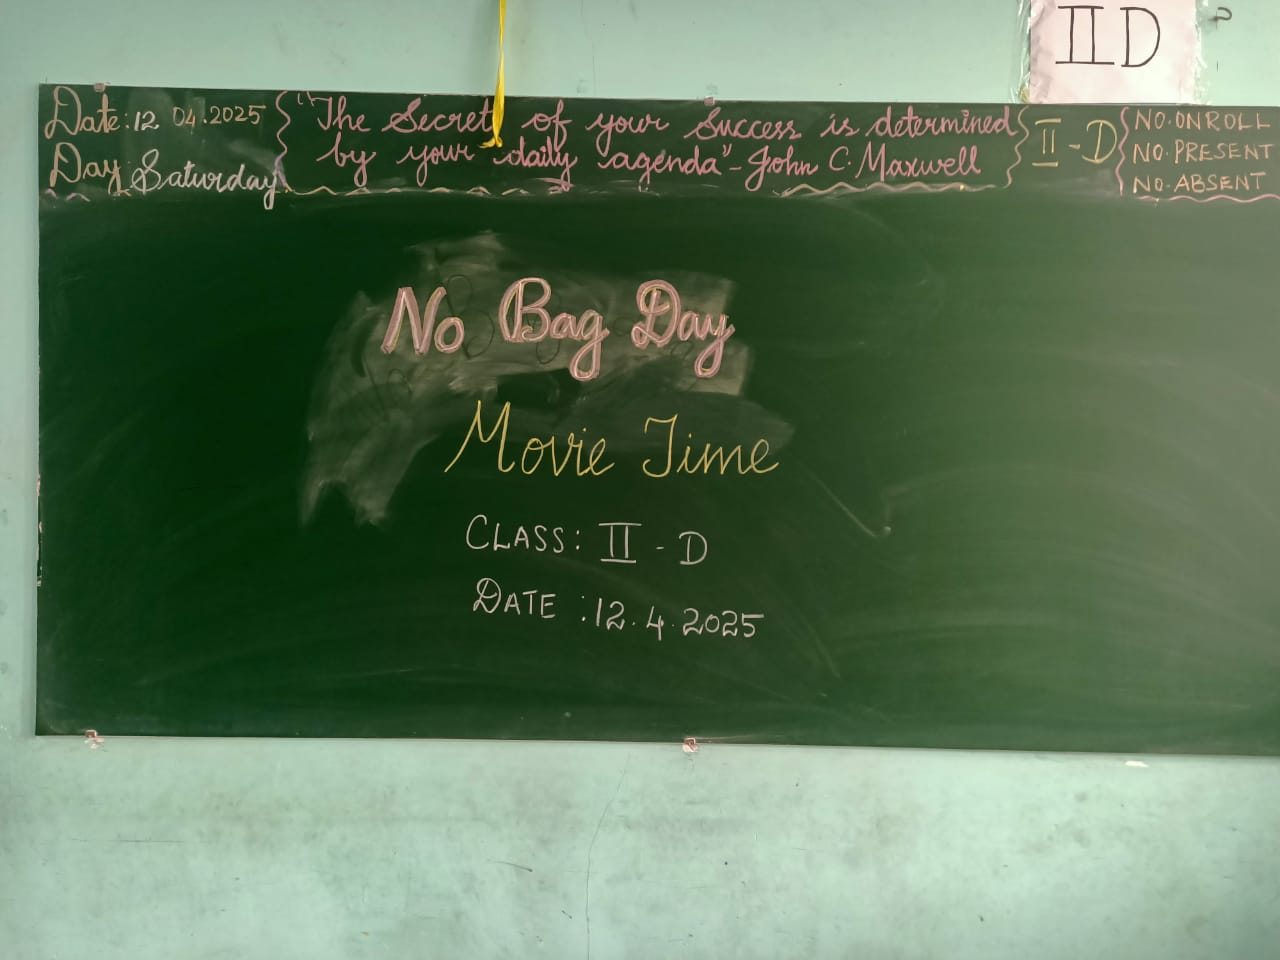 II D
Date: 12 04.2025
Day: Saturday
"The Secret of your Success is determined
by your daily agenda" - John C. Maxwell
II - D
NO. ONROLL
NO. PRESENT
NO. ABSENT
No Bag Day
Movie Time
CLASS: II - D
DATE : 12.4.2025